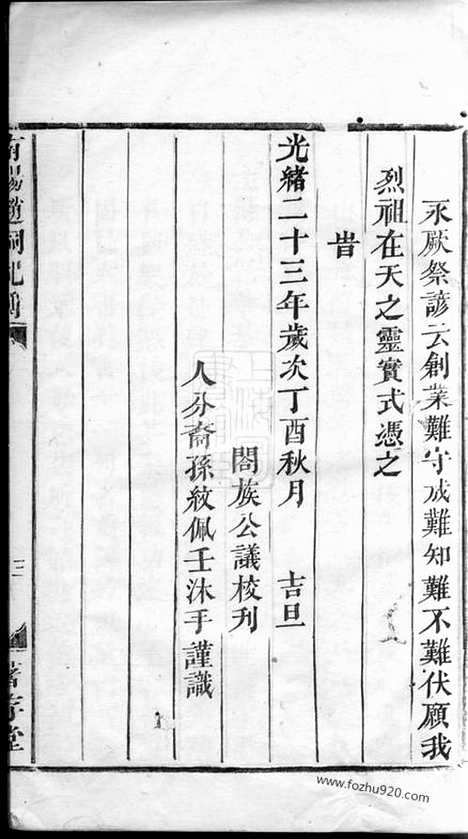 永厥祭諺云創業難守成難知難不難伏願我
烈祖在天之靈實式憑之
旹
光緒二十三年歲次丁酉秋月 吉旦
閤族公議校刊
人分裔孫紋佩壬沐手謹識
三
www.fozhu920.com